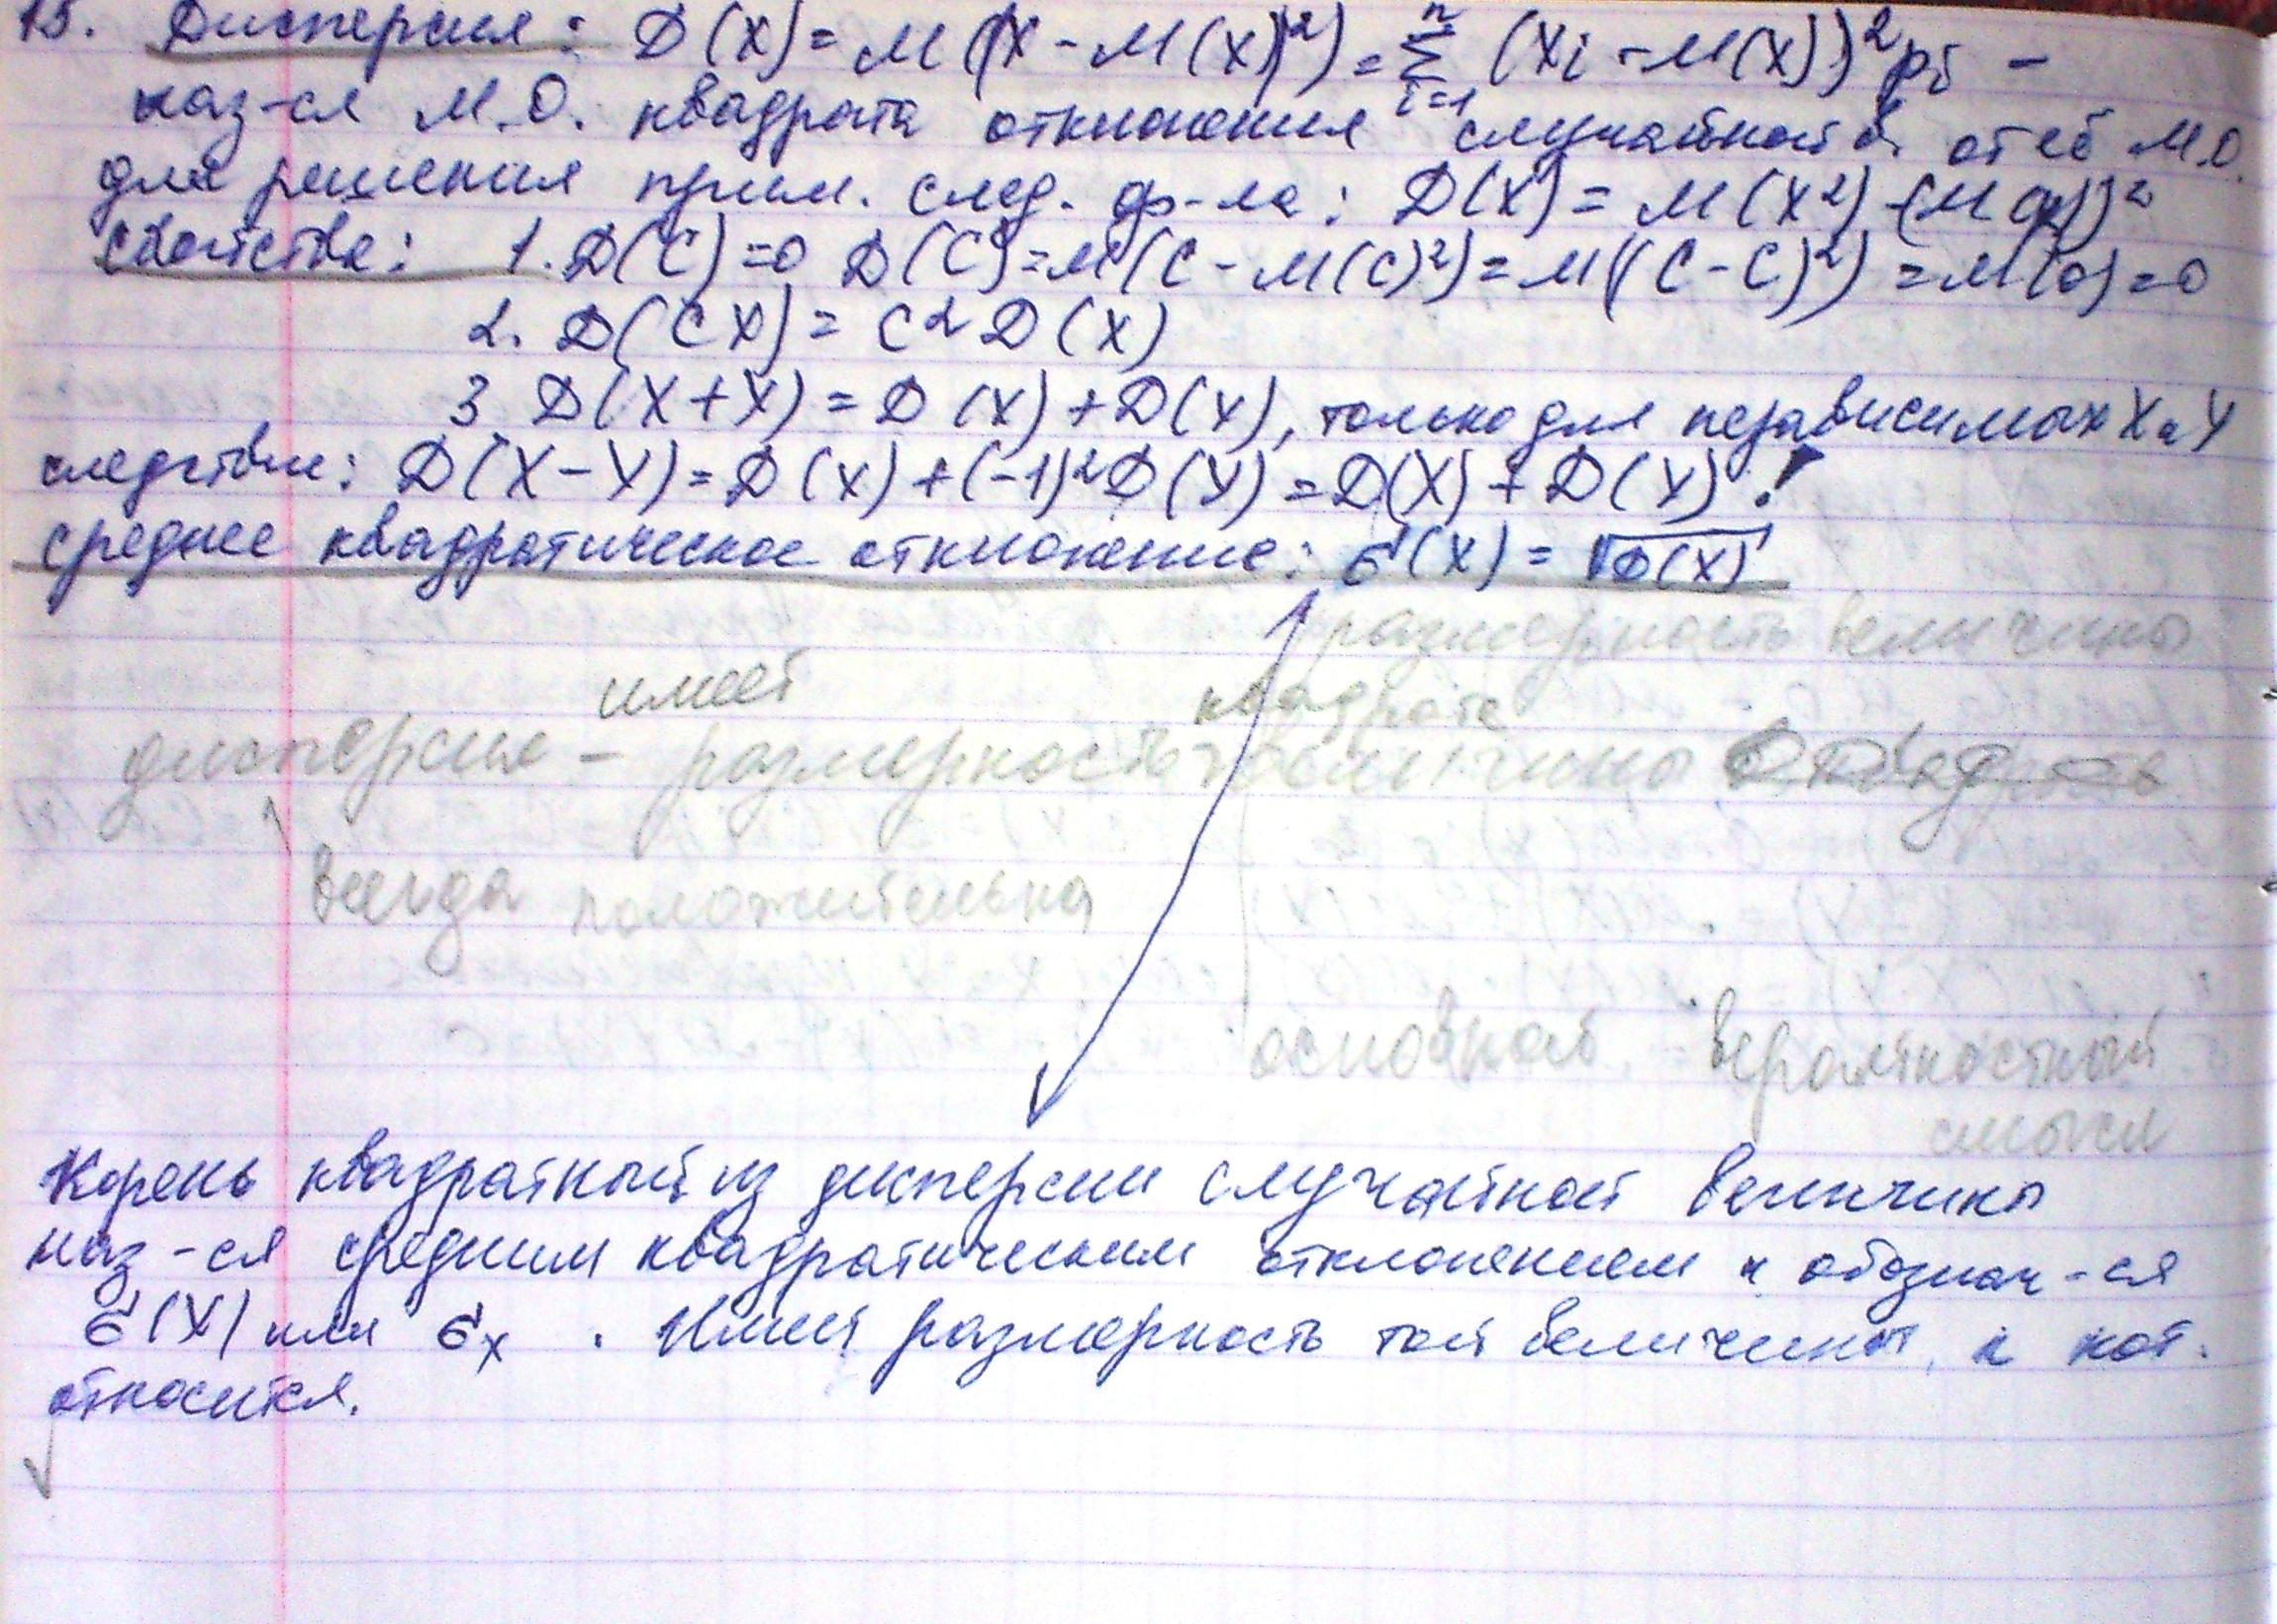 13. Дисперсия: D(X) = M((X - M(X))²) = ∑ⁿᵢ₌₁ (Xi - M(X))² pi -
наз-ся М.О. квадрата отклонения случайной в. от её М.О.
для решения прим. след. ф-ла: D(X) = M(X²) - (M(X))²
свойства: 1. D(C)=0 D(C)=M(C - M(C)²) = M((C-C)²) = M(0)=0
2. D(CX) = C² D(X)
3 D(X+Y) = D(X) + D(Y), только для независимых X и Y
следствие: D(X-Y) = D(X) + (-1)² D(Y) = D(X) + D(Y)!
среднее квадратическое отклонение: σ(X) = √D(X)
размерность величины
имеет квадрата
дисперсия - размерность величины
всегда положительна
основной вероятностный
смысл
Корень квадратный из дисперсии случайной величины
наз-ся средним квадратическим отклонением и обознач-ся
σ(X) или σx. Имеет размерность той величины, к кот.
относится.